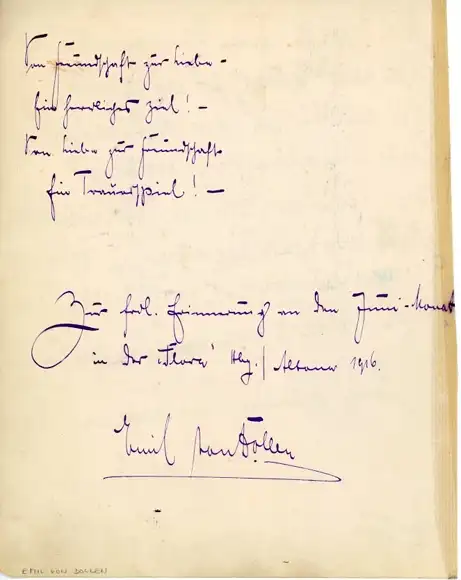 Von Freundschaft zur Liebe -
Ein herrliches Ziel! -
Von Liebe zur Freundschaft
Ein Trauerspiel! -
Zur frdl. Erinnerung an den Juni-Monat
in der „Flora" Hbg./Altona 1916.
Emil von Dollen
EMIL VON DOLLEN